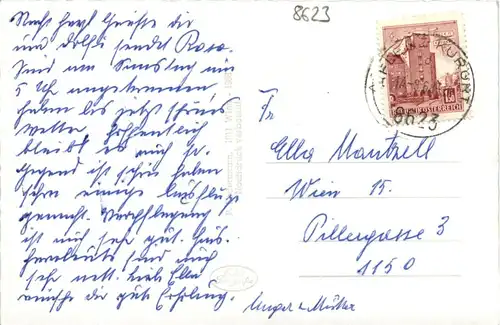 8623
Recht herzl. Grüße dir
und Dolfi sendet Rosa.
Sind am Samstag um
5 Uhr angekommen
haben bis jetzt schönes
Wetter hoffentlich
bleibt es auch so.
Gegend ist schön haben
schon einige Ausflüge
gemacht. Verpflegung
ist auch sehr gut. Haus-
sehr nett. liebe Ella
wünsche dir gute Erholung.
Fr
Ella
Wien 15.
Pillergasse 3
1150
8623
KURORT
ÖSTERREICH